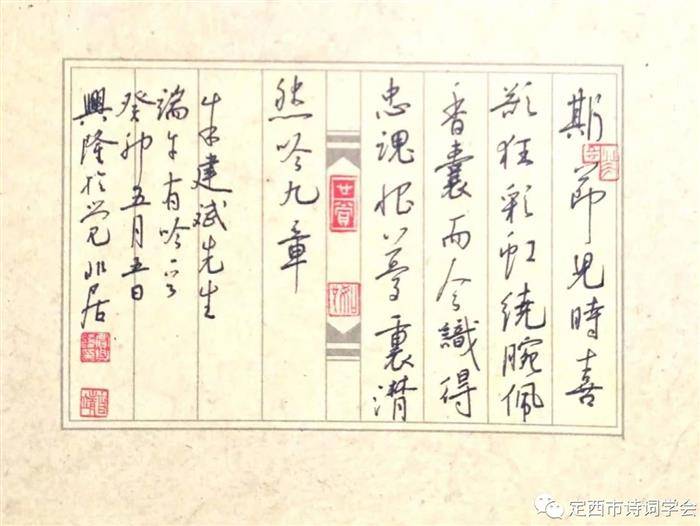 斯節兒時喜
欲狂彩虹繞腕佩
香囊而今識得
忠魂恨夢裏潸
然吟九章
建斌先生
端午有吟
癸卯五月五日
興隆於觉非居
定西市诗词学会